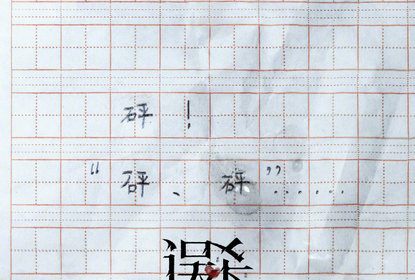 砰！
“砰、砰”……
误杀